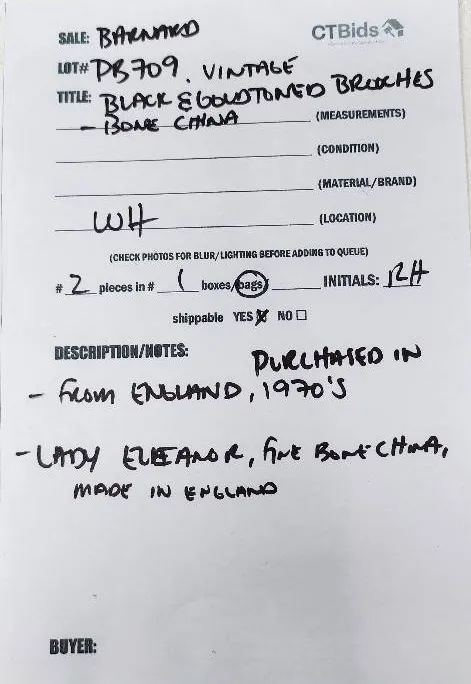 SALE: BARNARD
CTBids
LOT# DB709. VINTAGE
TITLE: BLACK & GOLDTONED BROOCHES
- BONE CHINA (MEASUREMENTS)
(CONDITION)
(MATERIAL/BRAND)
WH (LOCATION)
(CHECK PHOTOS FOR BLUR/LIGHTING BEFORE ADDING TO QUEUE)
# 2 pieces in # 1 boxes/bags INITIALS: RH
shippable YES NO
DESCRIPTION/NOTES: PURCHASED IN
- FROM ENGLAND, 1970'S
- LADY ELEANOR, FINE BONE CHINA,
MADE IN ENGLAND
BUYER: